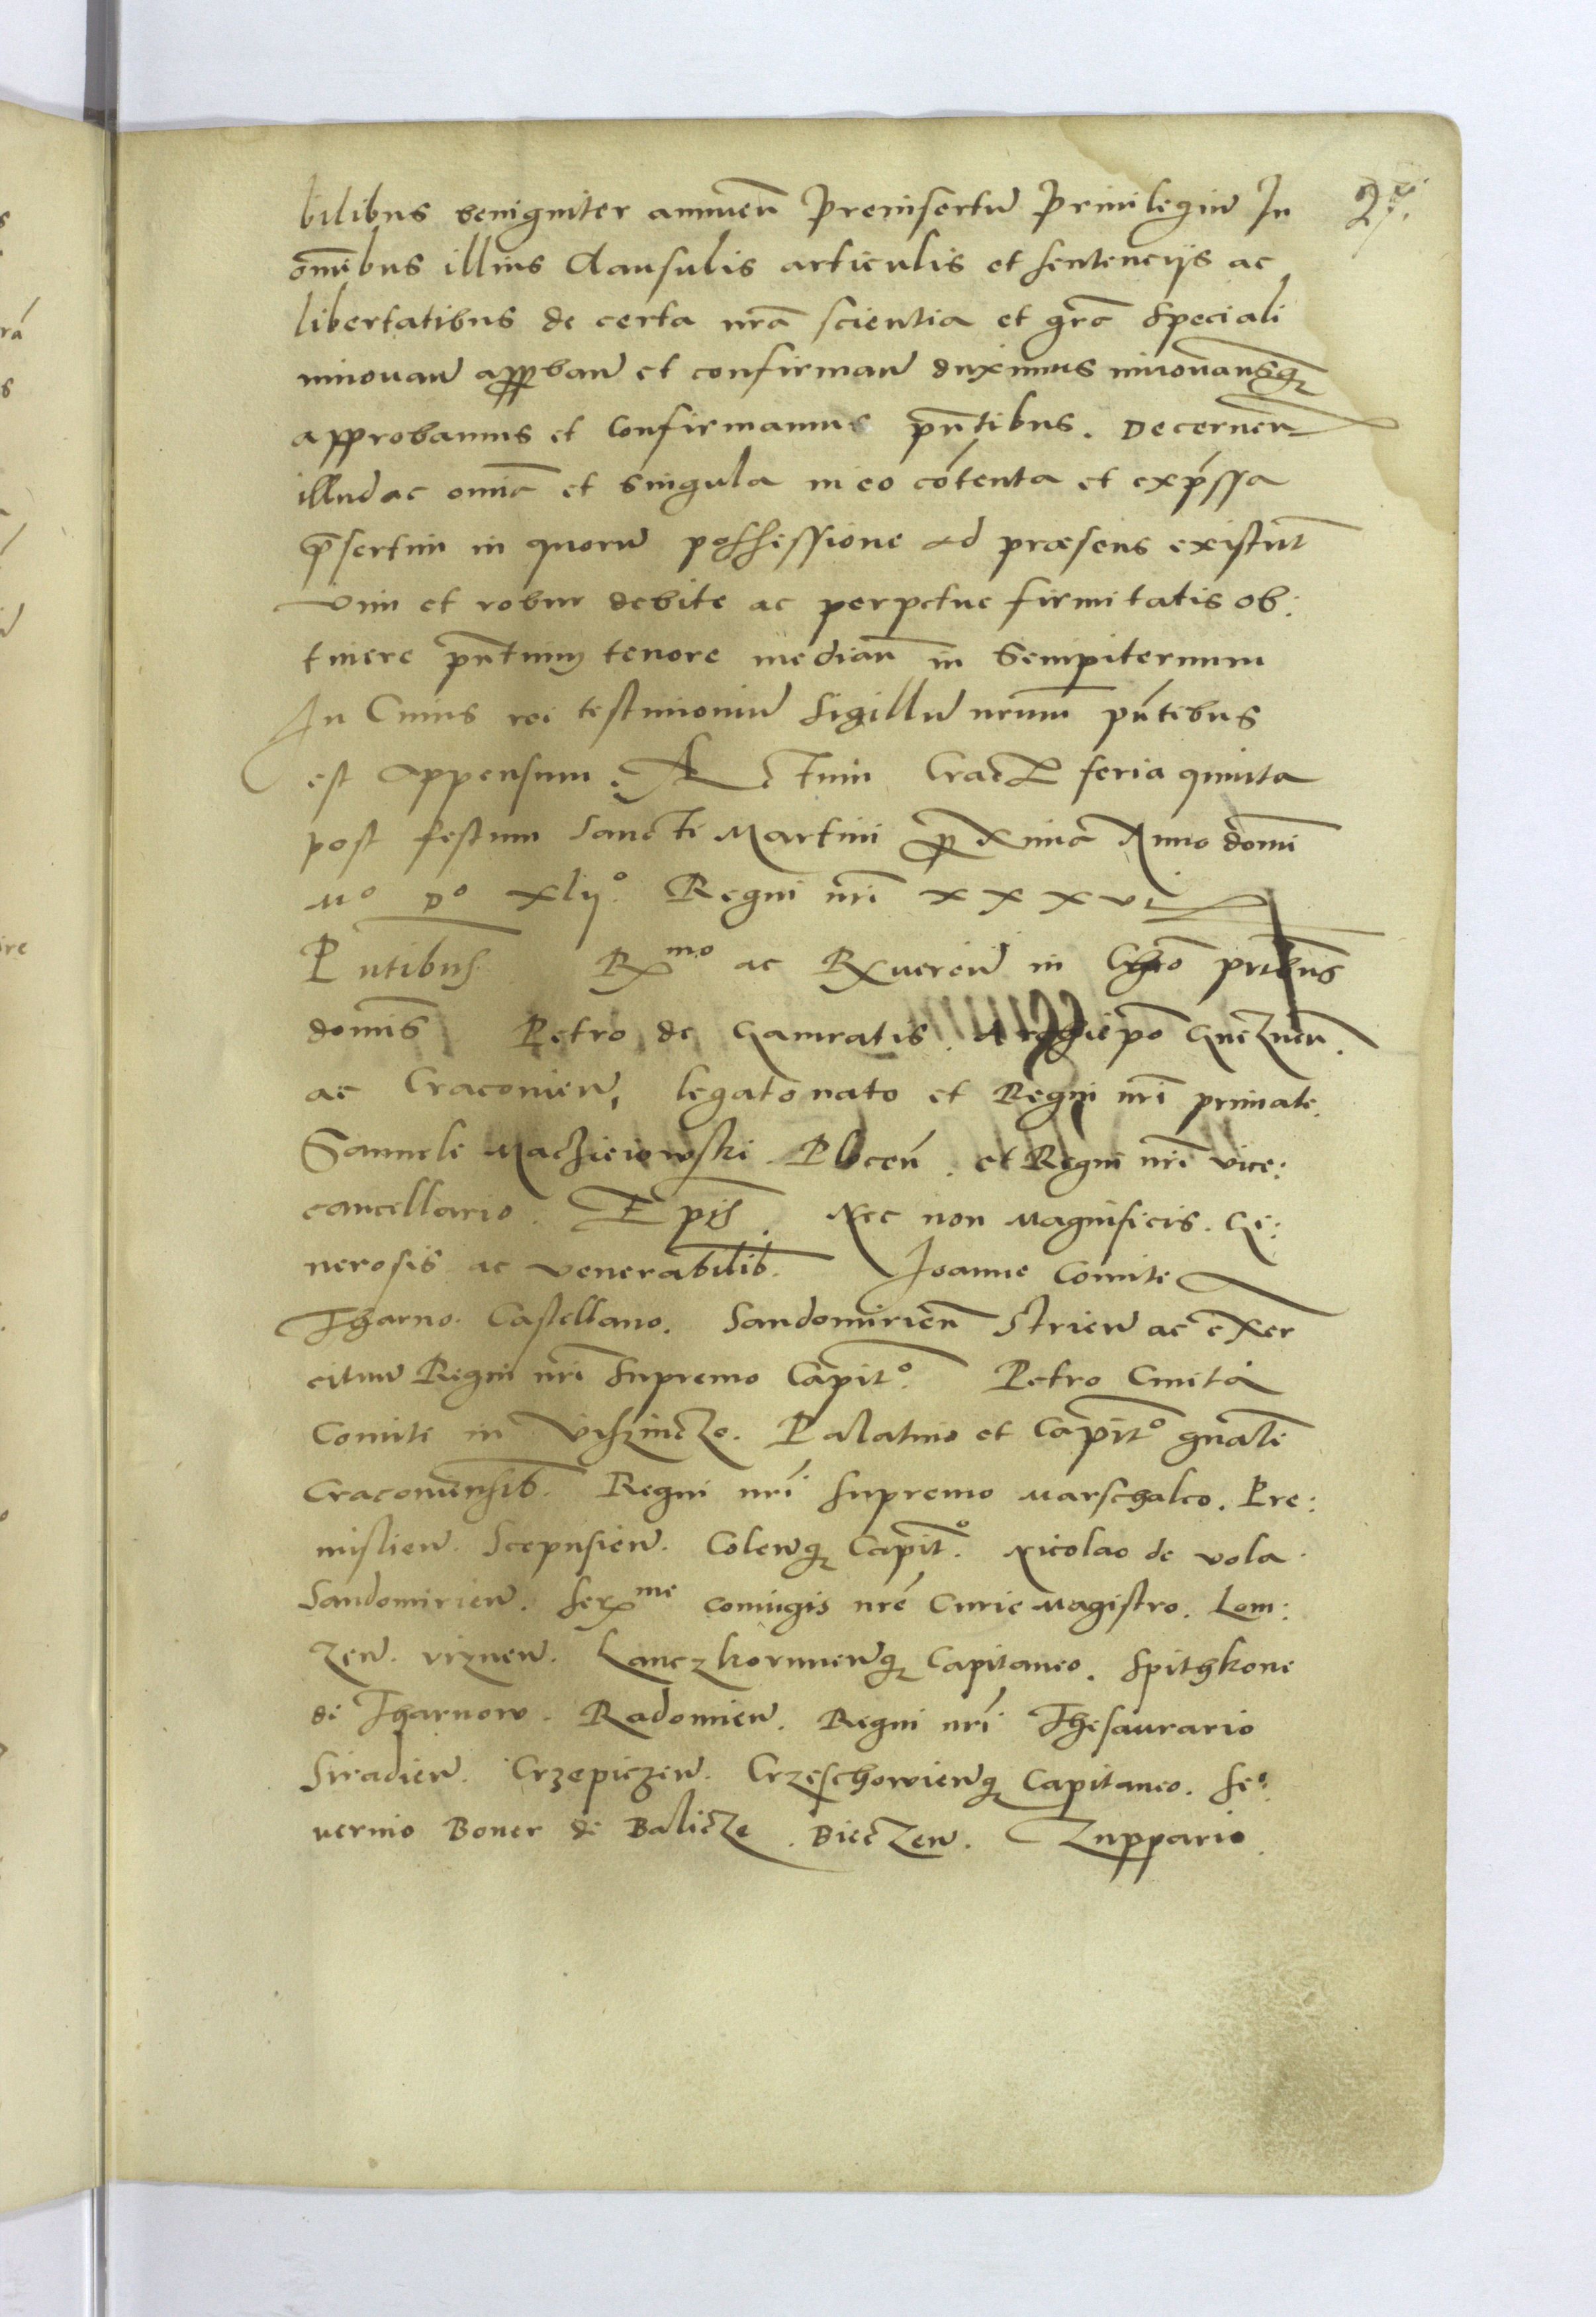 bilibus benigniter annuen̄ Preinsertū Privilegiū In
om̄ibus illius Clausulis articulis et sentencijs ac
libertatibus de certa nr̄a scientia et gr̄a speciali
innovan̄ approban̄ et confirman̄ duximus innovamusq̨
approbamus et confirmamus pn̄tibus. Decernen̄
illud ac om̄ia et singula in eo cōtenta et exp̄ssa
p̄sertim in quorū possessione ad præsens existūt
vim et robur debite ac perpetue firmitatis ob:
tinere pn̄tium tenore median̄ in sempiternum
In Cuius rei testimoniū sigillū nr̄um pn̄tibus
est appensum. Actum Crac̄ feria quinta
post festum sancti Martini proxima Anno domi̅
Mº Dº xlijº. Regni nr̄i xxxvi
Pn̄tibus Rx̄mo ac Rx̄veren̄ in Chr̄o pr̄ibus
domi̅s Petro de Gamratis. Archiepō Gneznen̄.
ac Cracovien̄, legato nato et Regni nr̄i primate.
Samuele Maczieiowski. Plocen̄. et Regni nr̄i vice:
cancellario. Ep̄is. Nec non Magnificis. Ge:
nerosis ac venerabilib. Joanne Comite
Tharno. Castellano. Sandomirien̄ Strien̄ ac exer
cituū Regni nr̄i supremo Capitº. Petro Cmita
Comite in Viszincze. Palatino et Capitº gn̄ale
Cracoviensib. Regni nr̄i supremo Marschalco. Pre:
mislien̄. Scepusien̄. Colen̄q̨ Capitº. Nicolao de Vola
Sandomirien̄. serx̄me coniugis nr̄e Curie Magistro. Lom:
zen̄. viznen̄. Lanczkorunen̄q̨ Capitaneo. Spithkone
de Tharnow. Radomien̄. Regni nr̄i Thesaurario
Siradien̄. Crzepiczen̄. Crzeschowien̄q̨ Capitaneo. Se:
verino Boner de Balicze. Bieczen̄. Zuppario